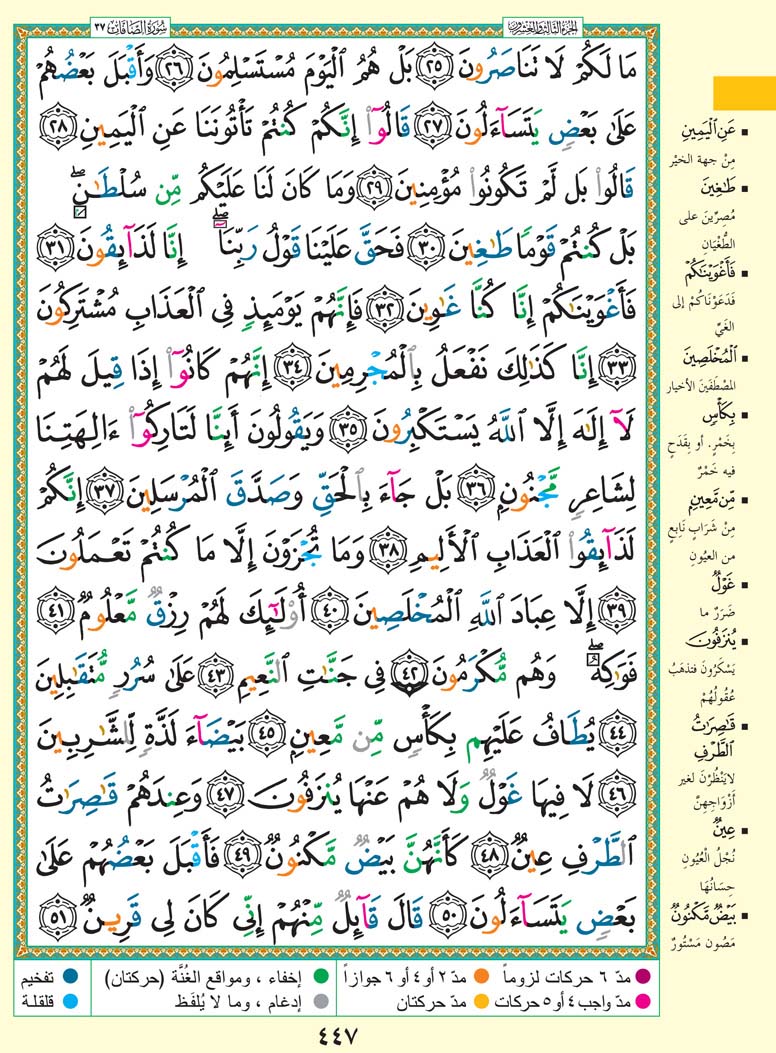 سُورَةُ الصَّافَّاتِ ٣٧
الجزء الثالث والعشرون
مَا لَكُمْ لَا تَنَاصَرُونَ ٢٥ بَلْ هُمُ الْيَوْمَ مُسْتَسْلِمُونَ ٢٦ وَأَقْبَلَ بَعْضُهُمْ
عَلَىٰ بَعْضٍ يَتَسَآءَلُونَ ٢٧ قَالُوٓا۟ إِنَّكُمْ كُنتُمْ تَأْتُونَنَا عَنِ الْيَمِينِ ٢٨
قَالُوا۟ بَل لَّمْ تَكُونُوا۟ مُؤْمِنِينَ ٢٩ وَمَا كَانَ لَنَا عَلَيْكُم مِّن سُلْطَٰنٍۖ
بَلْ كُنتُمْ قَوْمًا طَٰغِينَ ٣٠ فَحَقَّ عَلَيْنَا قَوْلُ رَبِّنَآۖ إِنَّا لَذَآئِقُونَ ٣١
فَأَغْوَيْنَٰكُمْ إِنَّا كُنَّا غَٰوِينَ ٣٢ فَإِنَّهُمْ يَوْمَئِذٍ فِى الْعَذَابِ مُشْتَرِكُونَ
٣٣ إِنَّا كَذَٰلِكَ نَفْعَلُ بِالْمُجْرِمِينَ ٣٤ إِنَّهُمْ كَانُوٓا۟ إِذَا قِيلَ لَهُمْ
لَآ إِلَٰهَ إِلَّا اللَّهُ يَسْتَكْبِرُونَ ٣٥ وَيَقُولُونَ أَئِنَّا لَتَارِكُوٓا۟ ءَالِهَتِنَا
لِشَاعِرٍ مَّجْنُونٍ ٣٦ بَلْ جَآءَ بِالْحَقِّ وَصَدَّقَ الْمُرْسَلِينَ ٣٧ إِنَّكُمْ
لَذَآئِقُوا۟ الْعَذَابِ الْأَلِيمِ ٣٨ وَمَا تُجْزَوْنَ إِلَّا مَا كُنتُمْ تَعْمَلُونَ
٣٩ إِلَّا عِبَادَ اللَّهِ الْمُخْلَصِينَ ٤٠ أُو۟لَٰٓئِكَ لَهُمْ رِزْقٌ مَّعْلُومٌ ٤١
فَوَٰكِهُۖ وَهُم مُّكْرَمُونَ ٤٢ فِى جَنَّٰتِ النَّعِيمِ ٤٣ عَلَىٰ سُرُرٍ مُّتَقَٰبِلِينَ
٤٤ يُطَافُ عَلَيْهِم بِكَأْسٍ مِّن مَّعِينٍ ٤٥ بَيْضَآءَ لَذَّةٍ لِّلشَّٰرِبِينَ
٤٦ لَا فِيهَا غَوْلٌ وَلَا هُمْ عَنْهَا يُنزَفُونَ ٤٧ وَعِندَهُمْ قَٰصِرَٰتُ
الطَّرْفِ عِينٌ ٤٨ كَأَنَّهُنَّ بَيْضٌ مَّكْنُونٌ ٤٩ فَأَقْبَلَ بَعْضُهُمْ عَلَىٰ
بَعْضٍ يَتَسَآءَلُونَ ٥٠ قَالَ قَآئِلٌ مِّنْهُمْ إِنِّى كَانَ لِى قَرِينٌ ٥١
عَنِ الْيَمِينِ
مِنْ جهة الخيْر
طَٰغِينَ
مُصِرِّينَ على
الطُّغْيَانِ
فَأَغْوَيْنَٰكُمْ
فَدَعَوْنَاكُمْ إلى
الغَيِّ
الْمُخْلَصِينَ
المصْطَفَيْنَ الأخيار
بِكَأْسٍ
بِخَمْرٍ. أو بِقَدَحٍ
فيه خَمْرٌ
مِّن مَّعِينٍ
مِنْ شَرَابٍ نَابِعٍ
من العيُونِ
غَوْلٌ
ضَرَرٌ ما
يُنزَفُونَ
يَسْكَرُونَ فتذهَبُ
عُقُولُهُمْ
قَٰصِرَٰتُ
الطَّرْفِ
لا يَنْظُرْنَ لغير
أَزْوَاجِهِنَّ
عِينٌ
نُجْلُ العُيُونِ
حِسَانُهَا
بَيْضٌ مَّكْنُونٌ
مَصُون مَسْتُورٌ
مدّ ٦ حركات لزوماً
مدّ ٢ أو ٤ أو ٦ جوازاً
إخفاء ، ومواقع الغُنَّة (حركتان)
تفخيم
مدّ واجب ٤ أو ٥ حركات
مدّ حركتان
إدغام ، وما لا يُلفَظ
قلقلة
٤٤٧